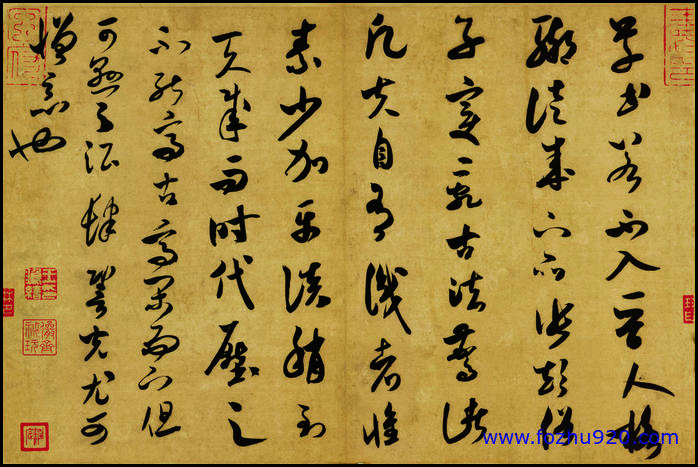 草書若不入晉人格
聊徒成下品張顛俗
子變亂古法驚諸
凡夫自有識者懷
素少加平淡稍到
天成而時代壓之
不能高古高閑而下但
可懸之酒肆䛒光尤可
憎惡也
www.fpzhu920.com